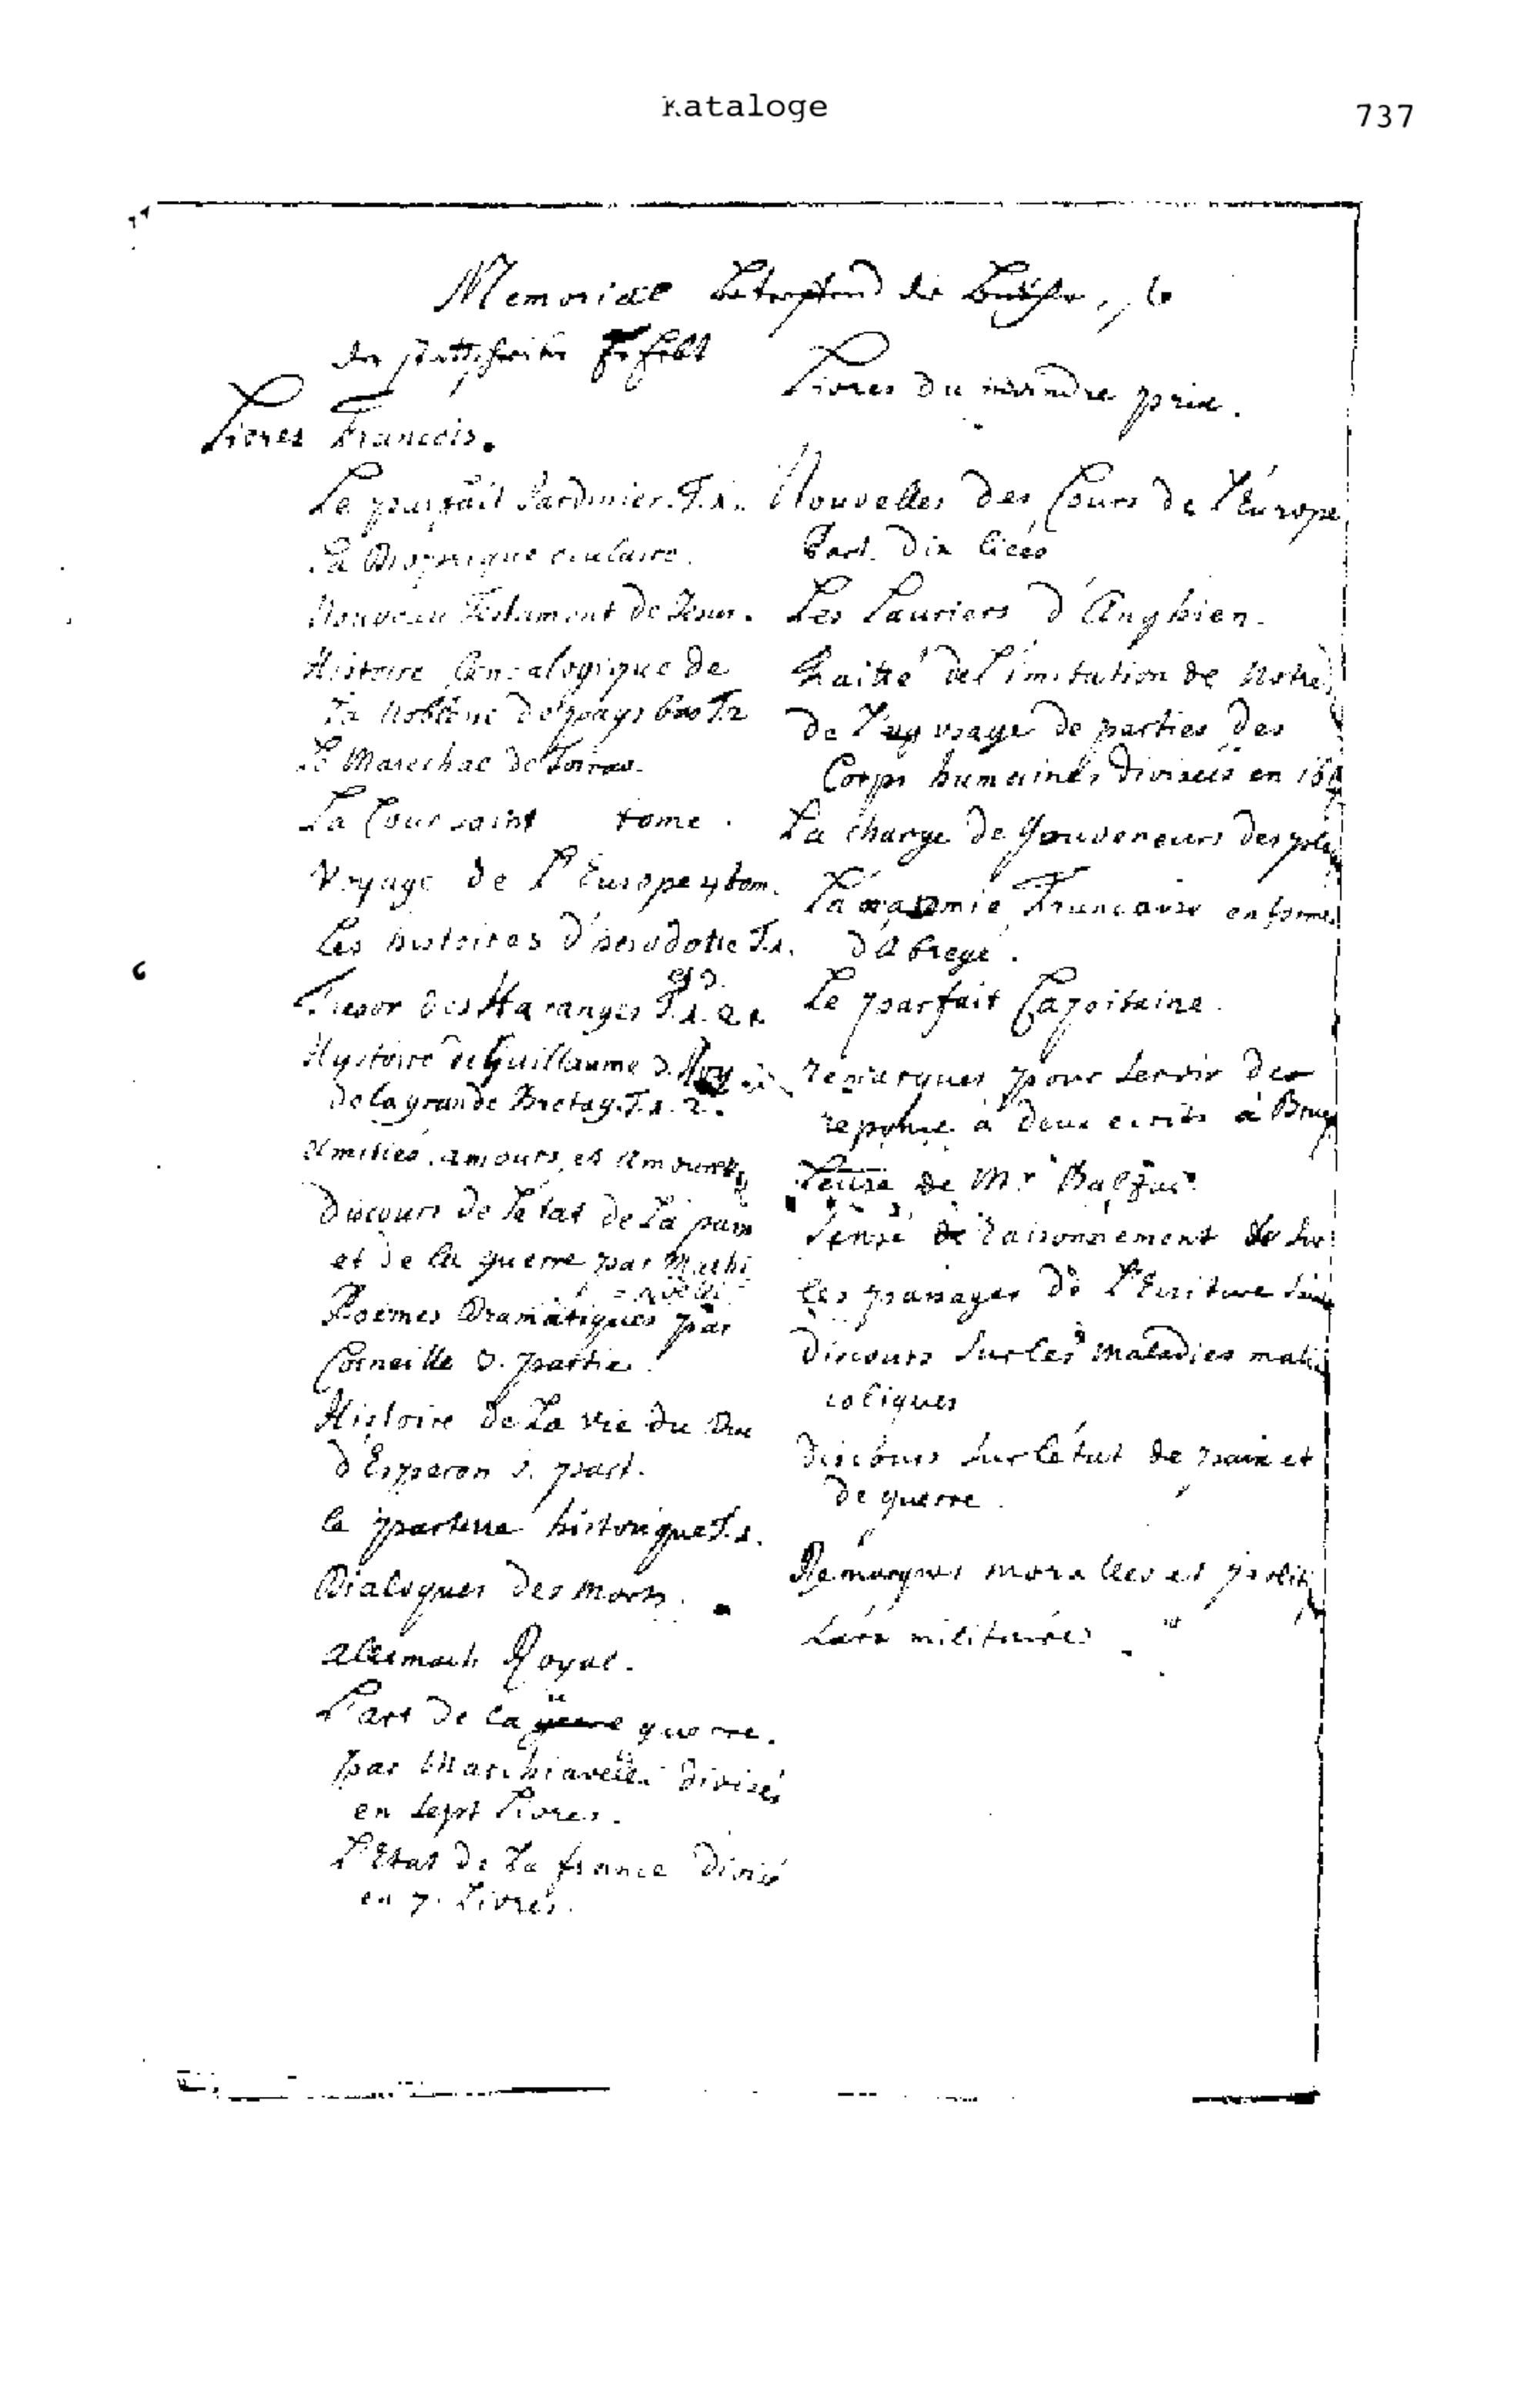 Kataloge
737
Memorial der
der
Livres Francois.
Le parfait Jardinier. T.1.
La oculaire.
Nouveau Testament de Jesus.
Histoire Genealogique de
la Noblesse de pays bas T2
Le Marechal de Toiras.
La Cour saint tome.
Voyage de l'Europe 4 tom.
les histoires d'herodotte T.1.
Tresor des Haranges T.1. 2
Hystoire de Guillaume Roy
de la grande Bretag. T.1. 2.
Amitiés, amours, et Amourett
Discours de l'état de la paix
et de la guerre par Machi
=avelli
Poëmes Dramatiques par
Corneille 3. partie.
Histoire de la vie du Duc
d'Esperon 3. part.
le parterre historique T.1.
Dialogues des Morts.
Allemach Royal.
L'art de la guerre.
par Machiavelli divisés
en sept Livres.
L'Etat de la france divisé
en 7. Livres.
Livres du moindre prix.
Nouvelles des Cours de l'Europe
Part. dix
Les Lauriers d'Anghien.
traitté de l'imitation de Notre
de l'usage de parties des
Corps humaines divisées en
La charge de Gouverneurs des
Francoise en forme
d'Abregé.
Le parfait Capitaine.
remarques pour servir der
reponse à deux ecrits à
Lettre de Mr. Balzac
Sensé raisonnement
les passages de l'Ecriture
discours sur les maladies
coliques
discours sur l'état de paix et
de guerre.
Remarques moralles et
militaires